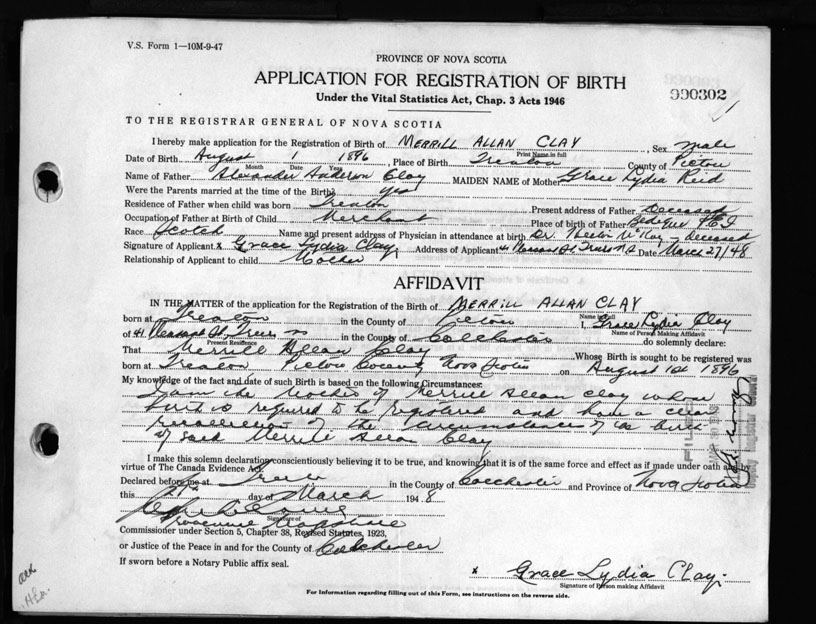 V.S. Form 1—10M-9-47
PROVINCE OF NOVA SCOTIA
APPLICATION FOR REGISTRATION OF BIRTH
990302
Under the Vital Statistics Act, Chap. 3 Acts 1946
TO THE REGISTRAR GENERAL OF NOVA SCOTIA
I hereby make application for the Registration of Birth of MERRILL ALLAN CLAY, Sex male
Print Name in full
Date of Birth August 1 1896, Place of Birth Trenton County of Pictou
Month Date Year
Name of Father Alexander Anderson Clay MAIDEN NAME of Mother Grace Lydia Reid
Were the Parents married at the time of the Birth? Yes
Residence of Father when child was born Trenton Present address of Father Deceased
Occupation of Father at Birth of Child Merchant Place of birth of Father Bedeque P.E.I
Race Scotch Name and present address of Physician in attendance at birth Dr. deceased
Signature of Applicant x Grace Lydia Clay, Address of Applicant Date March 27/48
Relationship of Applicant to child Mother
AFFIDAVIT
IN THE MATTER of the application for the Registration of the Birth of MERRILL ALLAN CLAY
born at Trenton in the County of Pictou I, Grace Lydia Clay
Name in full
Name of Person Making Affidavit
of 41 Pleasant St. Truro NS in the County of Colchester do solemnly declare:
Present Residence
That Merrill Allan Clay Whose Birth is sought to be registered was
born at Trenton Pictou County Nova Scotia on August 1st 1896
My knowledge of the fact and date of such Birth is based on the following Circumstances:
I am the mother of Merrill Allan Clay whose
birth is required to be registered and have a clear
recollection of the circumstances of the birth
of said Merrill Allan Clay
I make this solemn declaration conscientiously believing it to be true, and knowing that it is of the same force and effect as if made under oath and by
virtue of The Canada Evidence Act.
Declared before me at Truro in the County of Colchester and Province of Nova Scotia
this 27th day of March 1948
Signature of
Commissioner under Section 5, Chapter 38, Revised Statutes, 1923,
or Justice of the Peace in and for the County of Colchester
If sworn before a Notary Public affix seal.
x Grace Lydia Clay.
Signature of Person making Affidavit
For Information regarding filling out of this Form, see instructions on the reverse side.